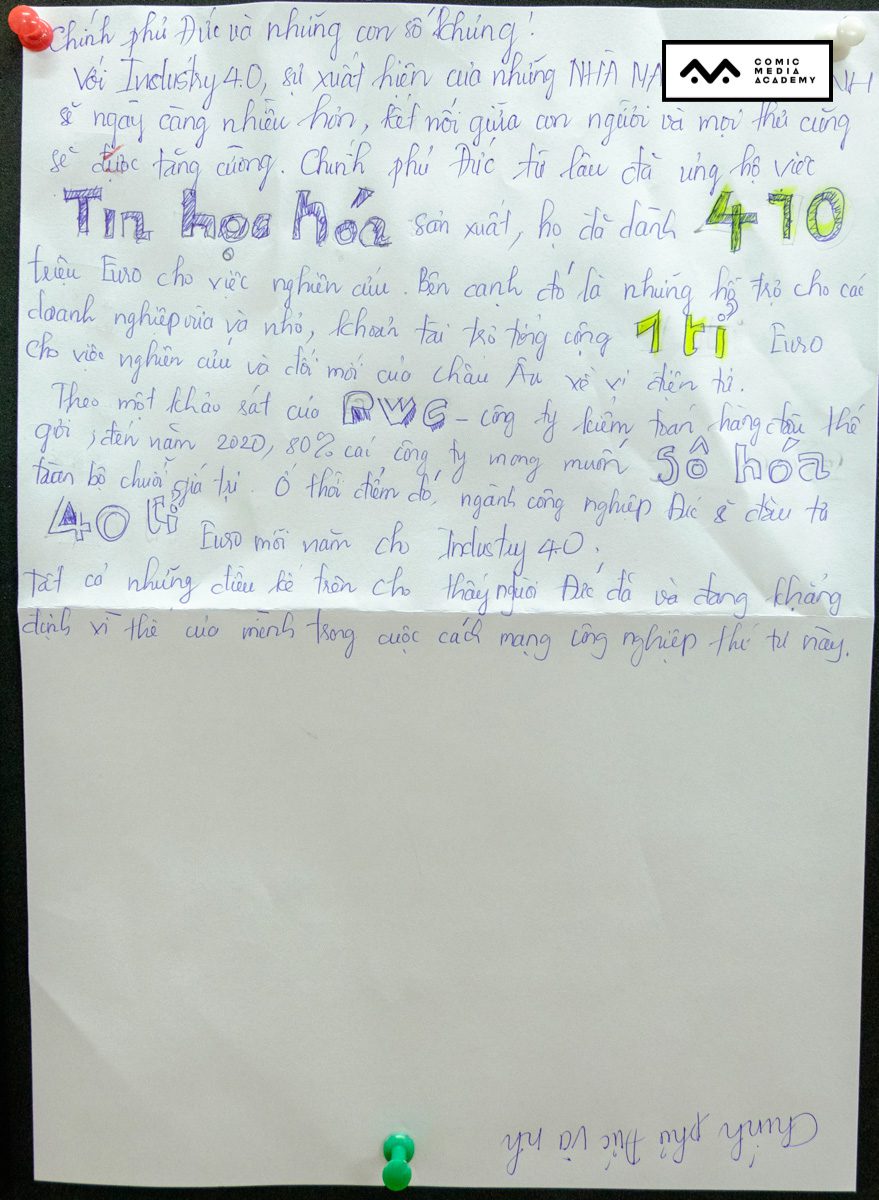 Chính phủ Đức và những con số khủng!
Với Industry 4.0, sự xuất hiện của những NHÀ MA NH
COMIC
MEDIA
ACADEMY
sẽ ngày càng nhiều hơn, kết nối giữa con người và mọi thứ cũng
sẽ được tăng cường. Chính phủ Đức từ lâu đã ủng hộ việc
Tin học hóa sản xuất, họ đã dành 410
triệu Euro cho việc nghiên cứu. Bên cạnh đó là những hỗ trợ cho các
doanh nghiệp vừa và nhỏ, khoản tài trợ tổng cộng 1 tỉ Euro
cho việc nghiên cứu và đổi mới của châu Âu về vi điện tử.
Theo một khảo sát của PWC - công ty kiểm toán hàng đầu thế
giới, đến năm 2020, 80% các công ty mong muốn số hóa
toàn bộ chuỗi giá trị. Ở thời điểm đó, ngành công nghiệp Đức sẽ đầu tư
40 tỉ Euro mỗi năm cho Industry 4.0.
Tất cả những điều kể trên cho thấy người Đức đã và đang khẳng
định vị thế của mình trong cuộc cách mạng công nghiệp thứ tư này.
Chính phủ Đức và nh